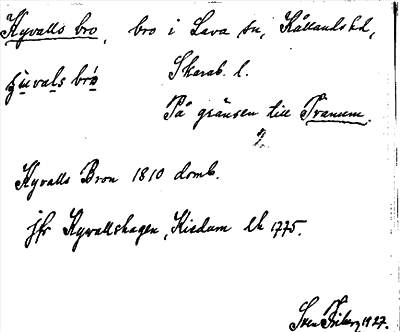 Kyvalls bro, bro i Lava sn, Kållands hd,
Skarab. l.
På gränsen till Tranum.
Kyvalls Bron 1810 domb.
jfr Kyvallshagen, Kisdum lk 1775.
Sven Friberg 1927.